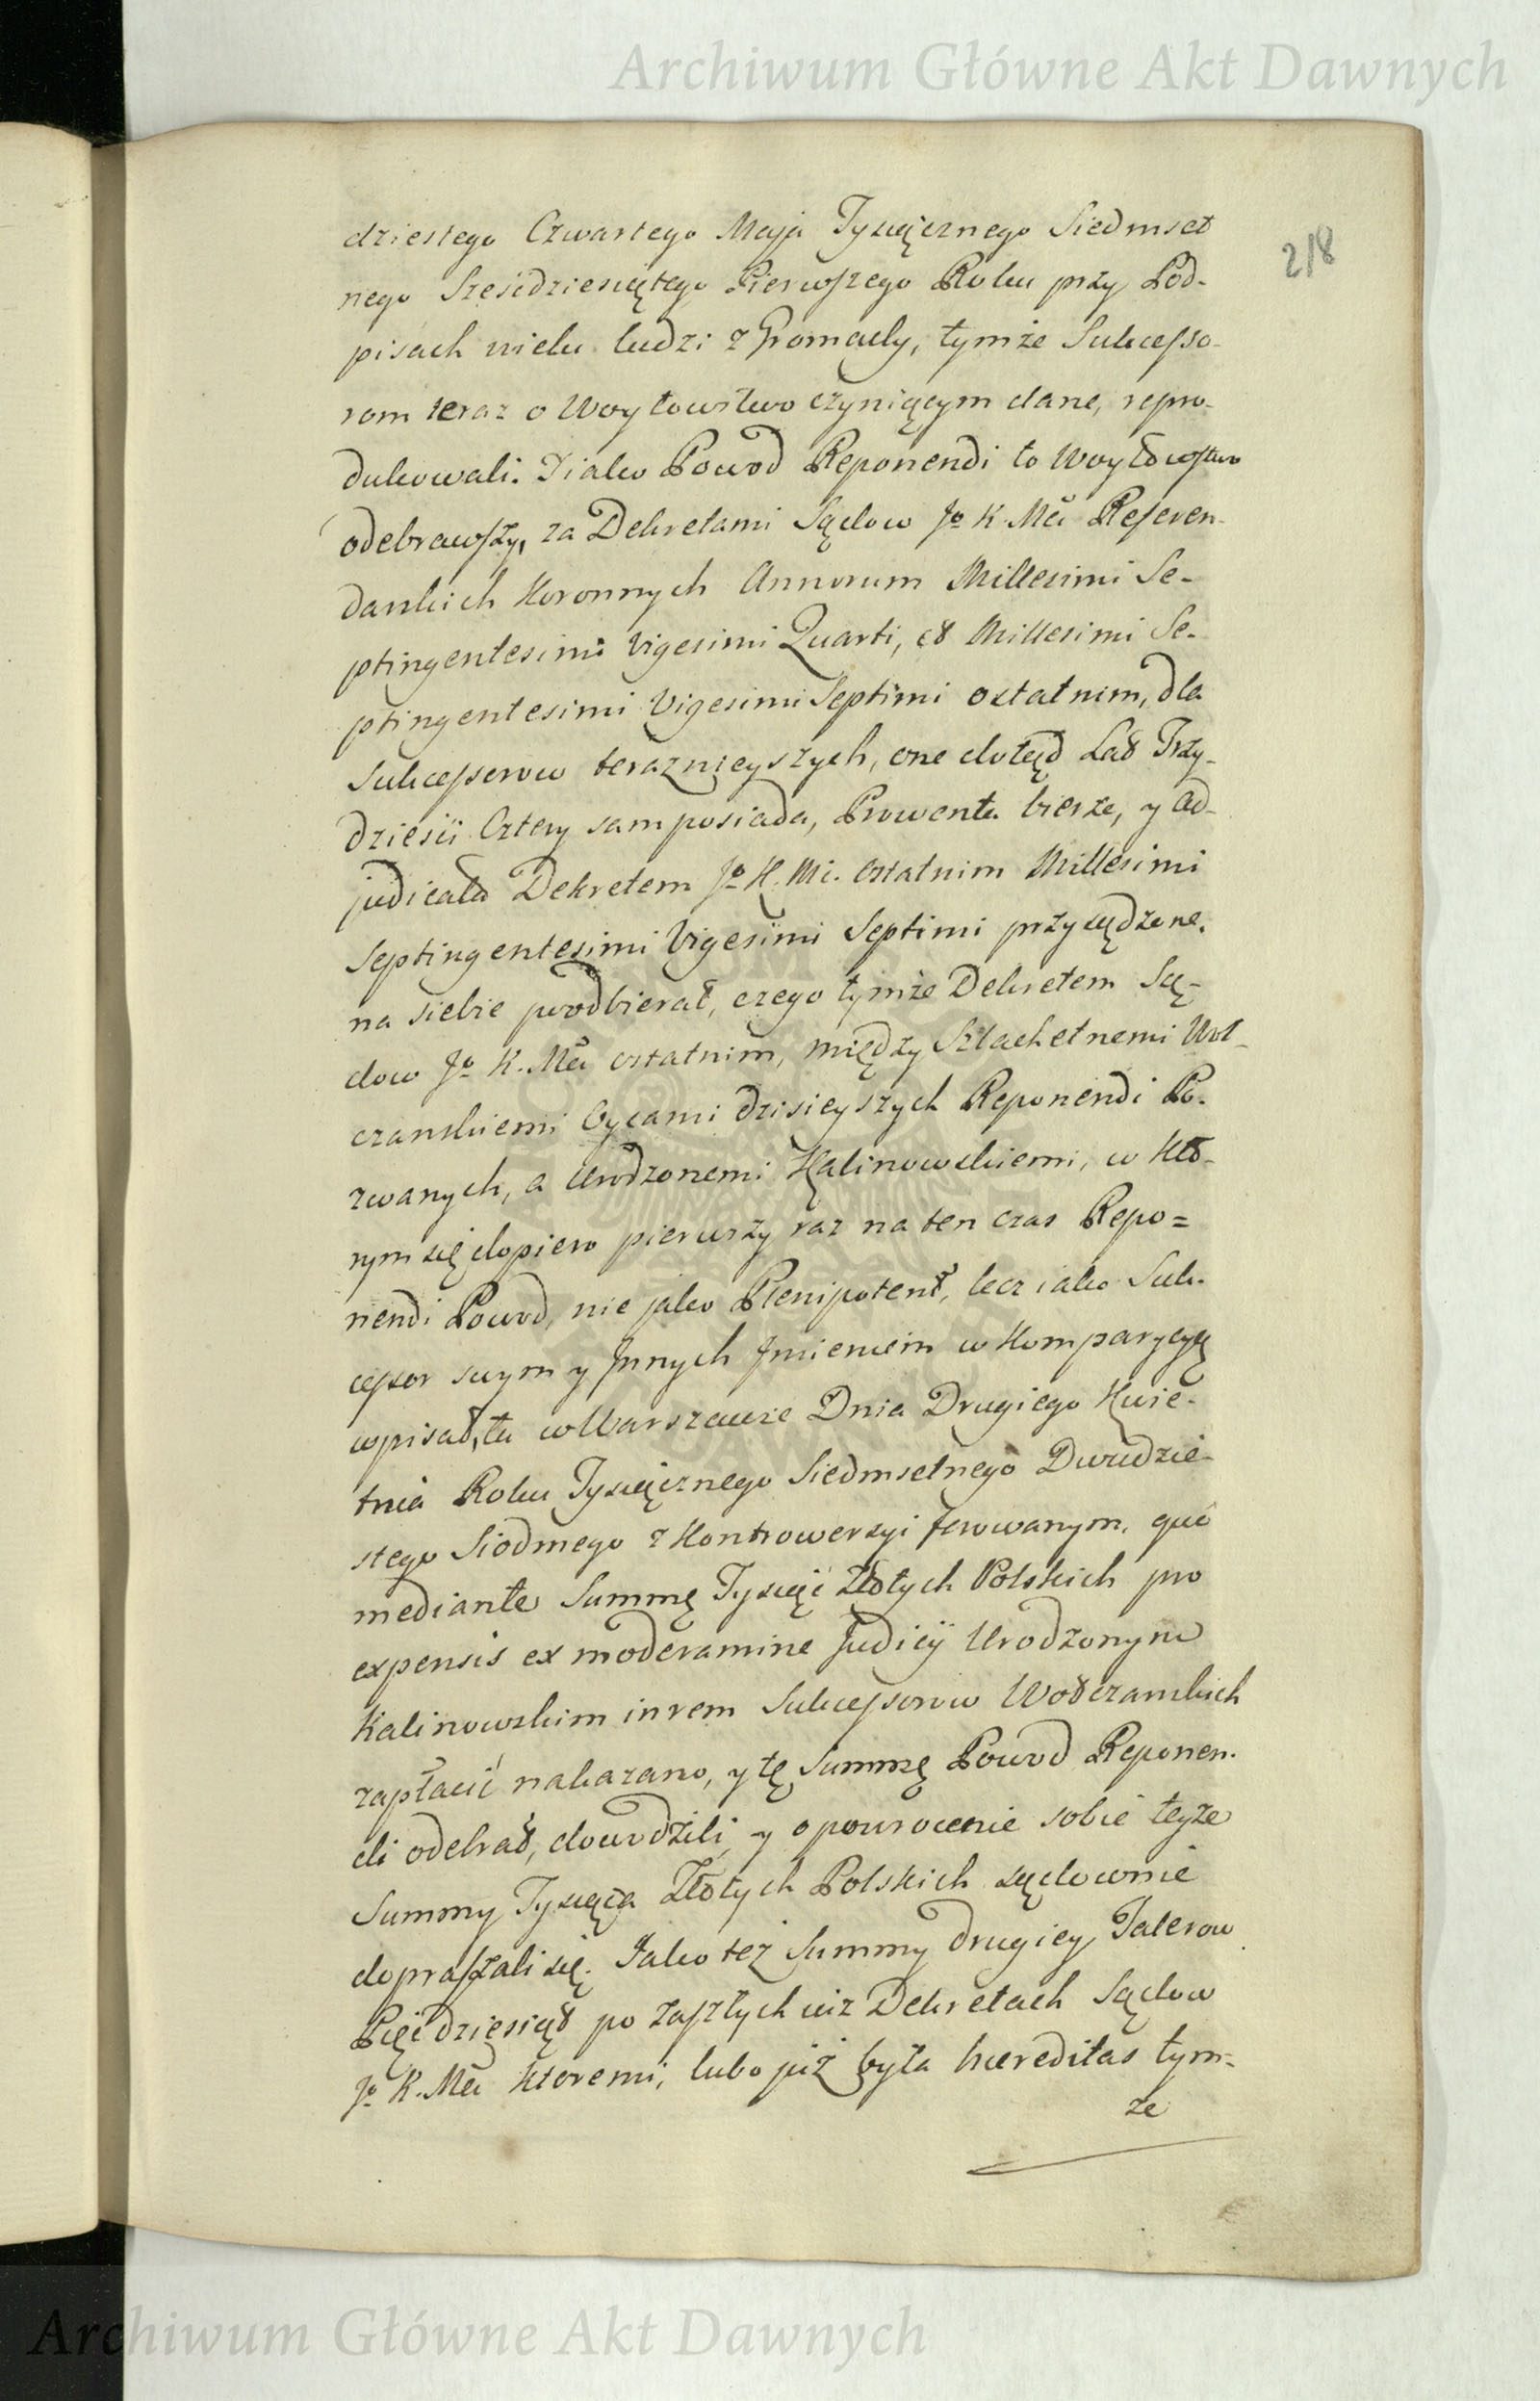 Archiwum Główne Akt Dawnych
218
dziestego Czwartego Maja Tysiącznego Siedmset
nego Sześćdziesiątego Pierwszego Roku przy Pod-
pisach wielu ludzi z Gromady, tymże Sukcesso-
rom teraz o Woytowstwo czyniącym dane, repro-
dukowali. I iako Powod Reponendi to Woytowstwo
odebrawszy, za Dekretami Sądow Jo K Mci Referen-
darskich Koronnych Annorum Millesimi Se-
ptingentesimi Vigesimi Quarti, et Millesimi Se-
ptingentesimi Vigesimi Septimi ostatnim, dla
Sukcessorow teraznieyszych, one dotąd Lat Trzy-
dzieści Cztery sam posiada, Prowenta bierze, y ad-
judicata Dekretem Jo K. Mci. ostatnim Millesimi
Septingentesimi Vigesimi Septimi przysądzone.
na siebie poodbierał, czego tymże Dekretem Są-
dow Jo K. Mci ostatnim, między Szlachetnemi Woł-
czanskiemi Oycami dzisieyszych Reponendi Po-
zwanych, a Urodzonemi Kalinowskiemi, w Kto-
rym się dopiero pierwszy raz na ten czas Repo=
nendi Powod, nie jako Plenipotent, lecz iako Suk-
cessor swym y Jnnych Jmieniem w Komparycyą
wpisał, tu w Warszawie Dnia Drugiego Kwie-
tnia Roku Tysiącznego Siedmsetnego Dwudzie-
stego Siodmego z Kontrowersyi ferowanym, quo
mediante Summę Tysiąc Złotych Polskich pro
expensis ex moderamine Judicij Urodzonym
Kalinowskim in rem Sukcessorow Wołczanskich
zapłacić nakazano, y tę Summę Powod Reponen-
di odebrał, dowodzili, y o powrocenie sobie teyże
Summy Tysiąca Złotych Polskich sądownie
dopraszali się. Jako też Summy drugiey Talerow
Pięćdziesiąt po zaszłych iuż Dekretach Sądow
Jo K. Mci ktoremi, lubo już była haereditas tym-
że
Archiwum Główne Akt Dawnych